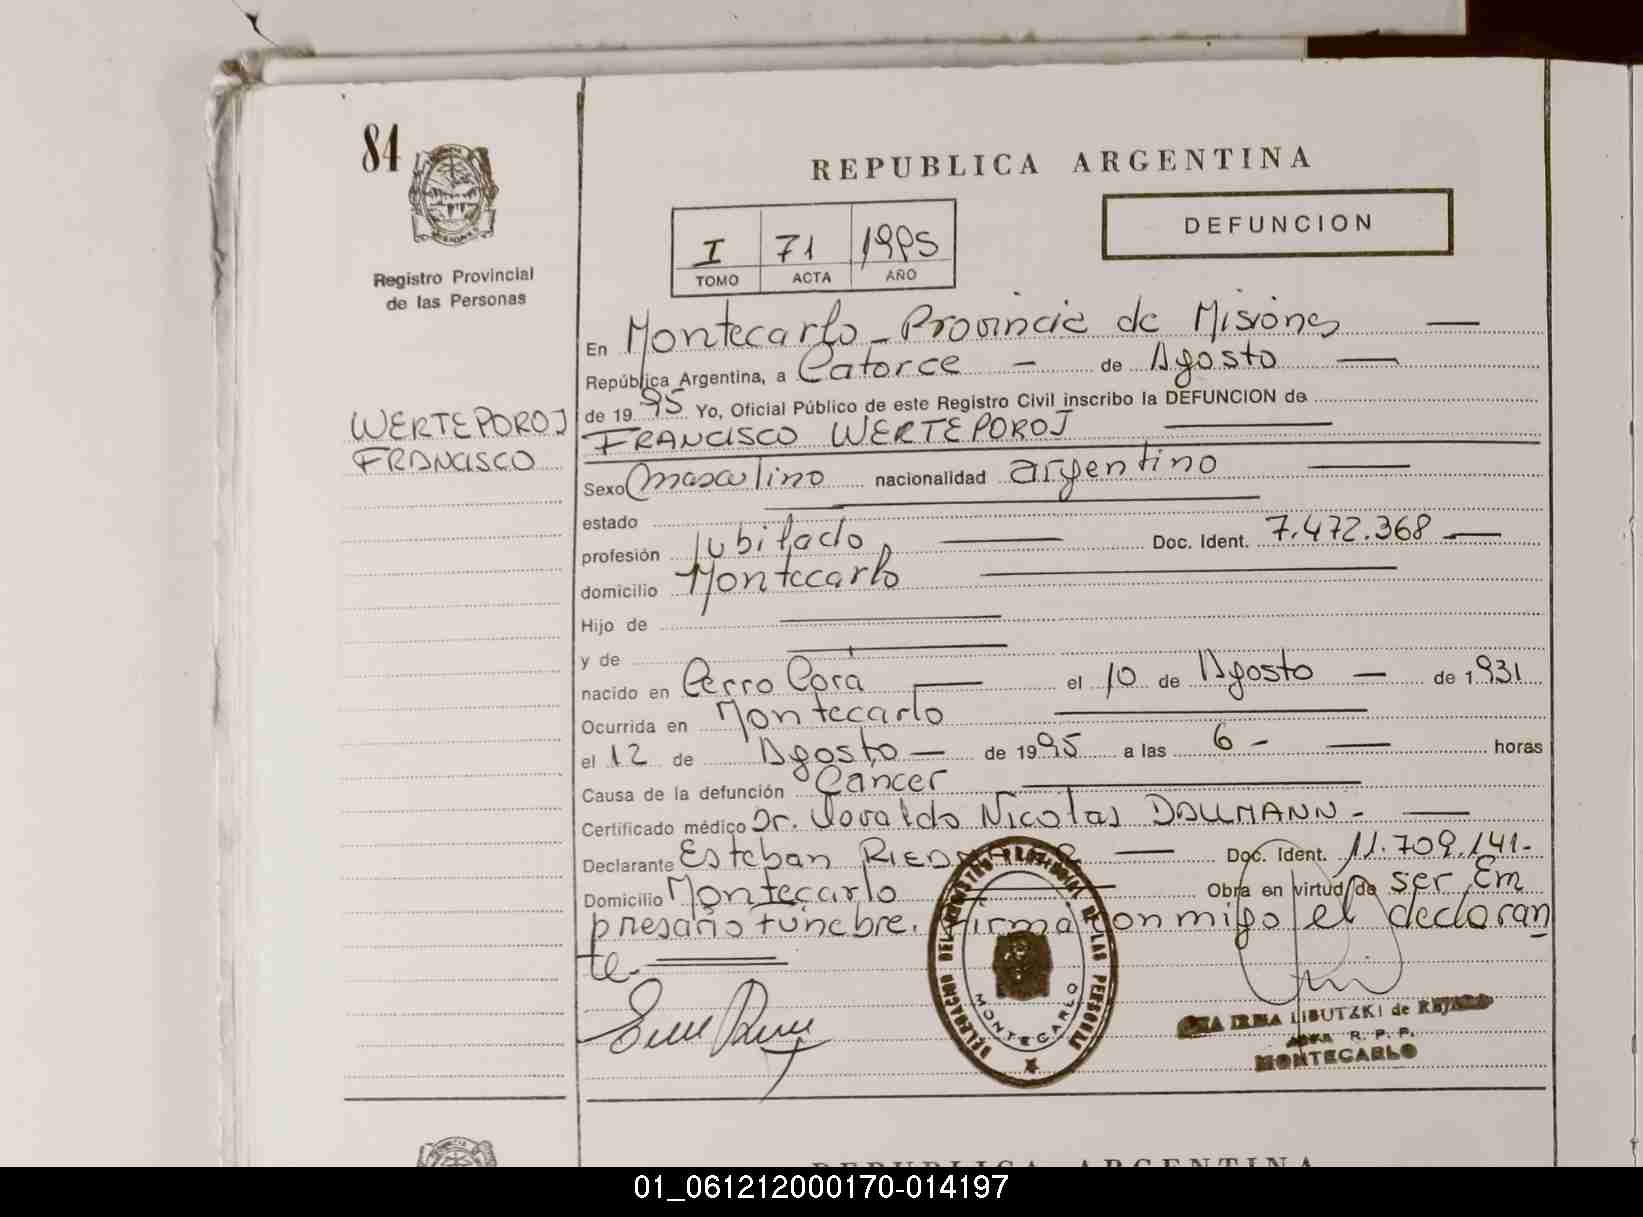 84
REPUBLICA ARGENTINA
DEFUNCION
I 71 1995
TOMO ACTA AÑO
Registro Provincial
de las Personas
WERTEPOROJ
FRANCISCO
En Montecarlo - Provincia de Misiones
República Argentina, a Catorce - de Agosto
de 19 95 Yo, Oficial Público de este Registro Civil inscribo la DEFUNCION de
FRANCISCO WERTEPOROJ
Sexo masculino nacionalidad argentino
estado
profesión Jubilado Doc. Ident. 7.472.368
domicilio Montecarlo
Hijo de
y de
nacido en Cerro Corá el 10 de Agosto de 1.931
Ocurrida en Montecarlo
el 12 de Agosto de 19 95 a las 6 - horas
Causa de la defunción Cancer
Certificado médico Dr. Osvaldo Nicolas DALLMANN -
Declarante Esteban Doc. Ident. 11.709.141.-
Domicilio Montecarlo Obra en virtud de ser Em
presario funebre. Firma conmigo el declaran
te.
DELEGACION DEL REGISTRO PROVINCIAL DE LAS PERSONAS
MONTECARLO
IRMA LIBUTZKI de
R. P. P.
MONTECARLO
REPUBLICA ARGENTINA
01_061212000170-014197